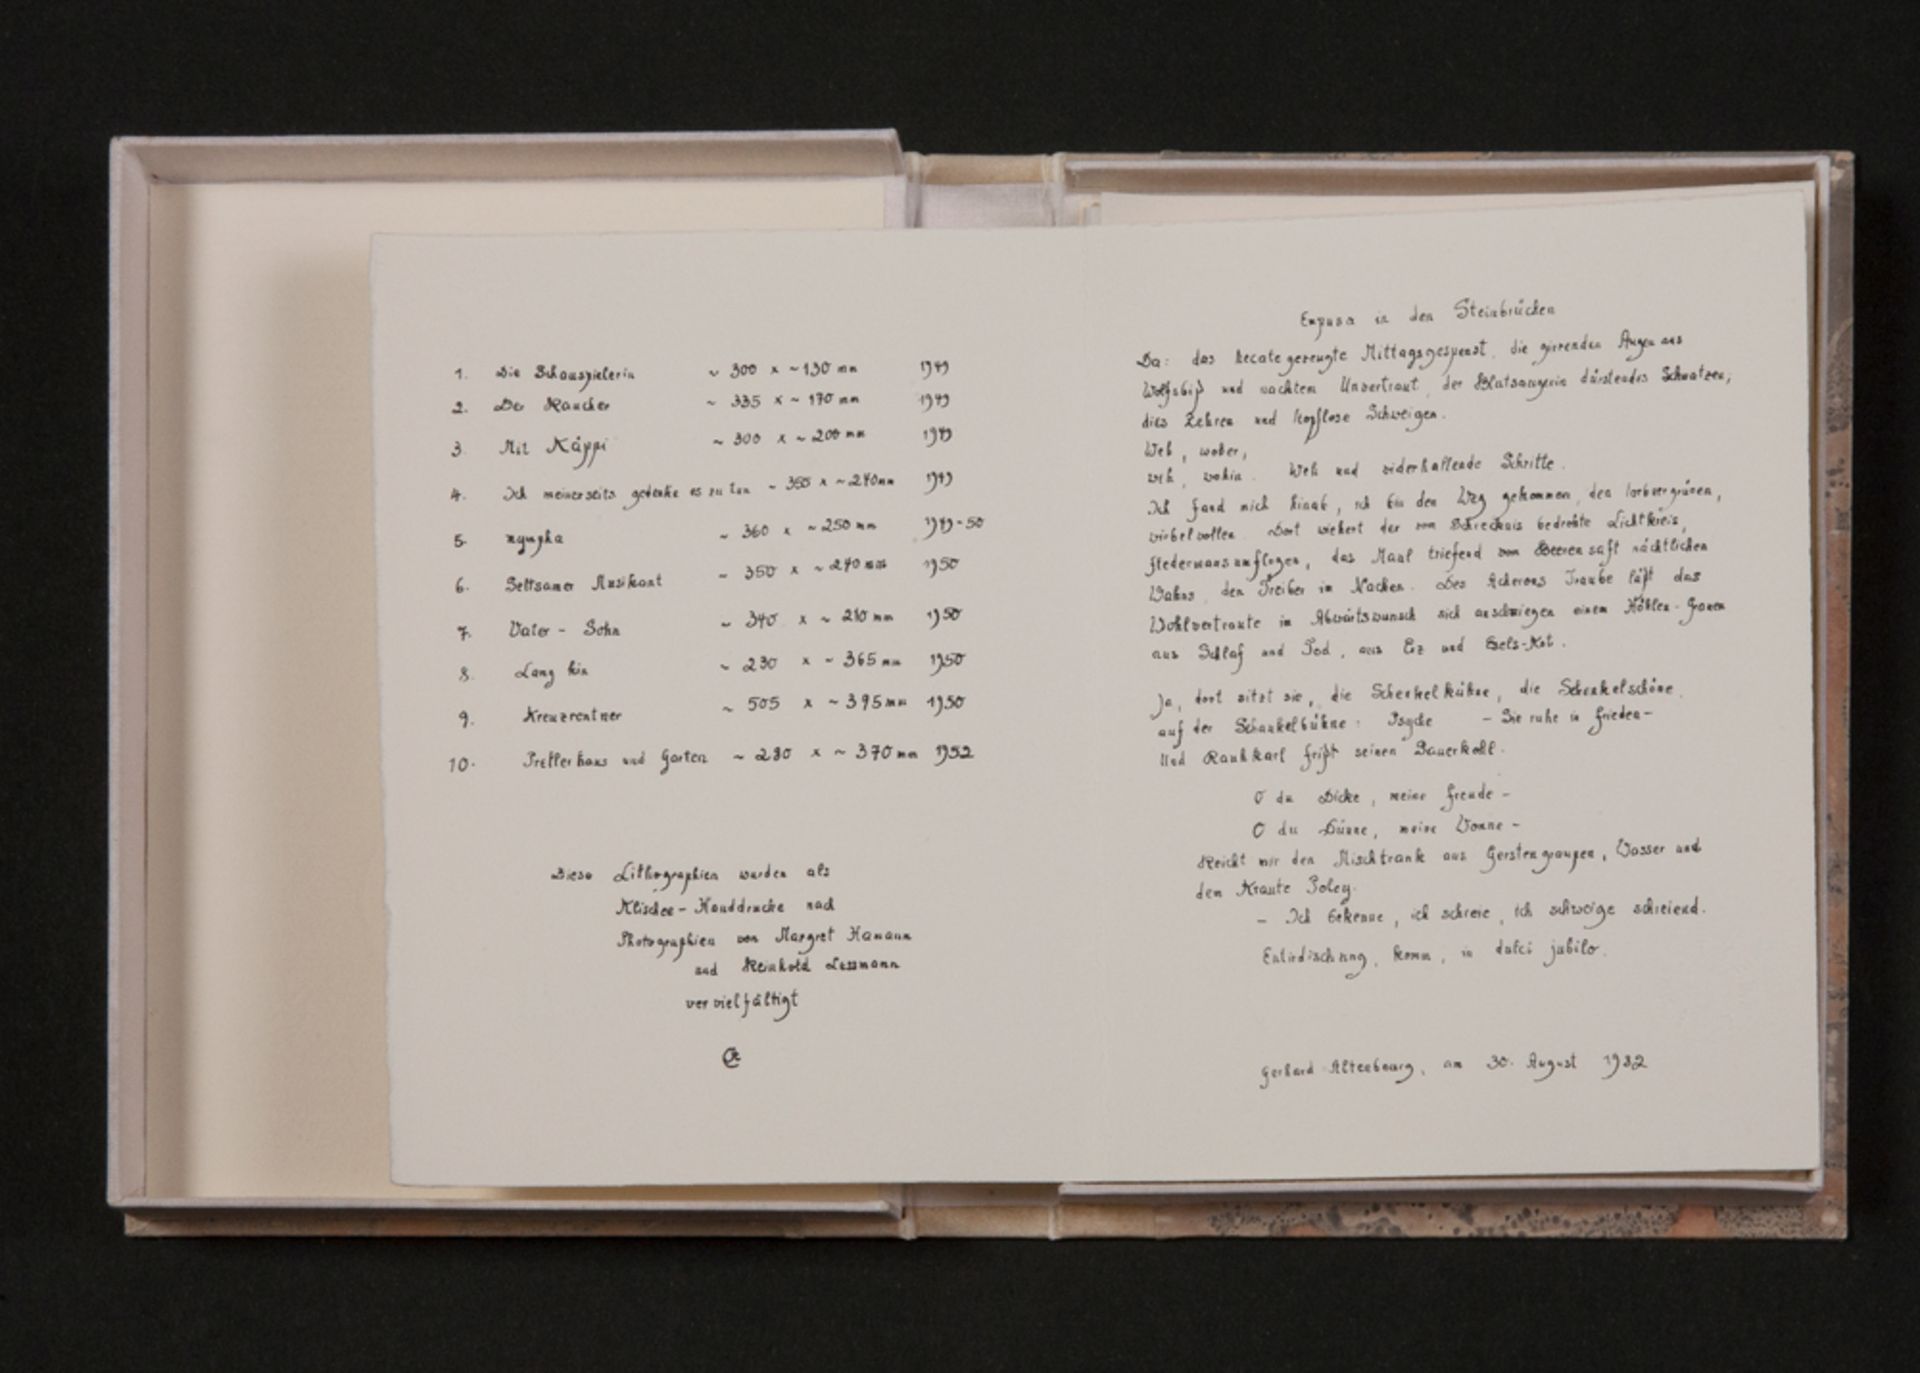 1. Die Schauspielerin ~ 300 x ~ 130 mm 1949
2. Der Raucher ~ 335 x ~ 170 mm 1949
3. Mit Käppi ~ 300 x ~ 200 mm 1949
4. Ich meinerseits gedenke es zu tun ~ 350 x ~ 240 mm 1949
5. nympha ~ 360 x ~ 250 mm 1949-50
6. Seltsamer Musikant ~ 350 x ~ 240 mm 1950
7. Vater - Sohn ~ 340 x ~ 210 mm 1950
8. Lang hin ~ 230 x ~ 365 mm 1950
9. Kreuzrentner ~ 505 x ~ 395 mm 1950
10. Prellerhaus und Garten ~ 280 x ~ 370 mm 1952
Diese Lithographien wurden als
Klischee-Handdrucke nach
Photographien von Margret Hamann
und Reinhold Lessmann
vervielfältigt
Empusa in den Steinbrüchen
Da: das hecategezeugte Mittagsgespenst, die gierenden Augen aus
Wolfsbiß und nachtem Unvertraut, der Blutsaugerin dürstendes Schmatzen;
dies Zehren und kopflose Schweigen.
Weh, woher,
weh, wohin. Weh und widerhallende Schritte.
Ich fand mich hinab, ich bin den Weg gekommen, den lorbeergrünen,
wirbelvollen. Dort wiehert der von Schrecknis bedrohte Lichtkreis,
fledermausumflogen, das Maul triefend vom Beerensaft nächtlichen
Wahns, den Treiber im Nacken. Des Acherons Traube läßt das
Wohlvertraute im Abwärtswunsch sich anschmiegen einem Höhlen-Grauen
aus Schlaf und Tod, aus Erz und Esels-Kot.
Ja, dort sitzt sie, die Schenkelkühne, die Schenkelschöne,
auf der Schaukelbühne: Psyche - Sie ruhe in Frieden -
Und Rauhkarl frißt seinen Bauerkohl.
O du Dicke, meine Freude -
O du Dünne, meine Wonne -
Reicht mir den Mischtrank aus Gerstengraupen, Wasser und
dem Kraute Poley.
- Ich bekenne, ich schreie, ich schweige schreiend.
Entirdischung, komm, in dulci jubilo.
Gerhard Altenbourg, am 30. August 1982